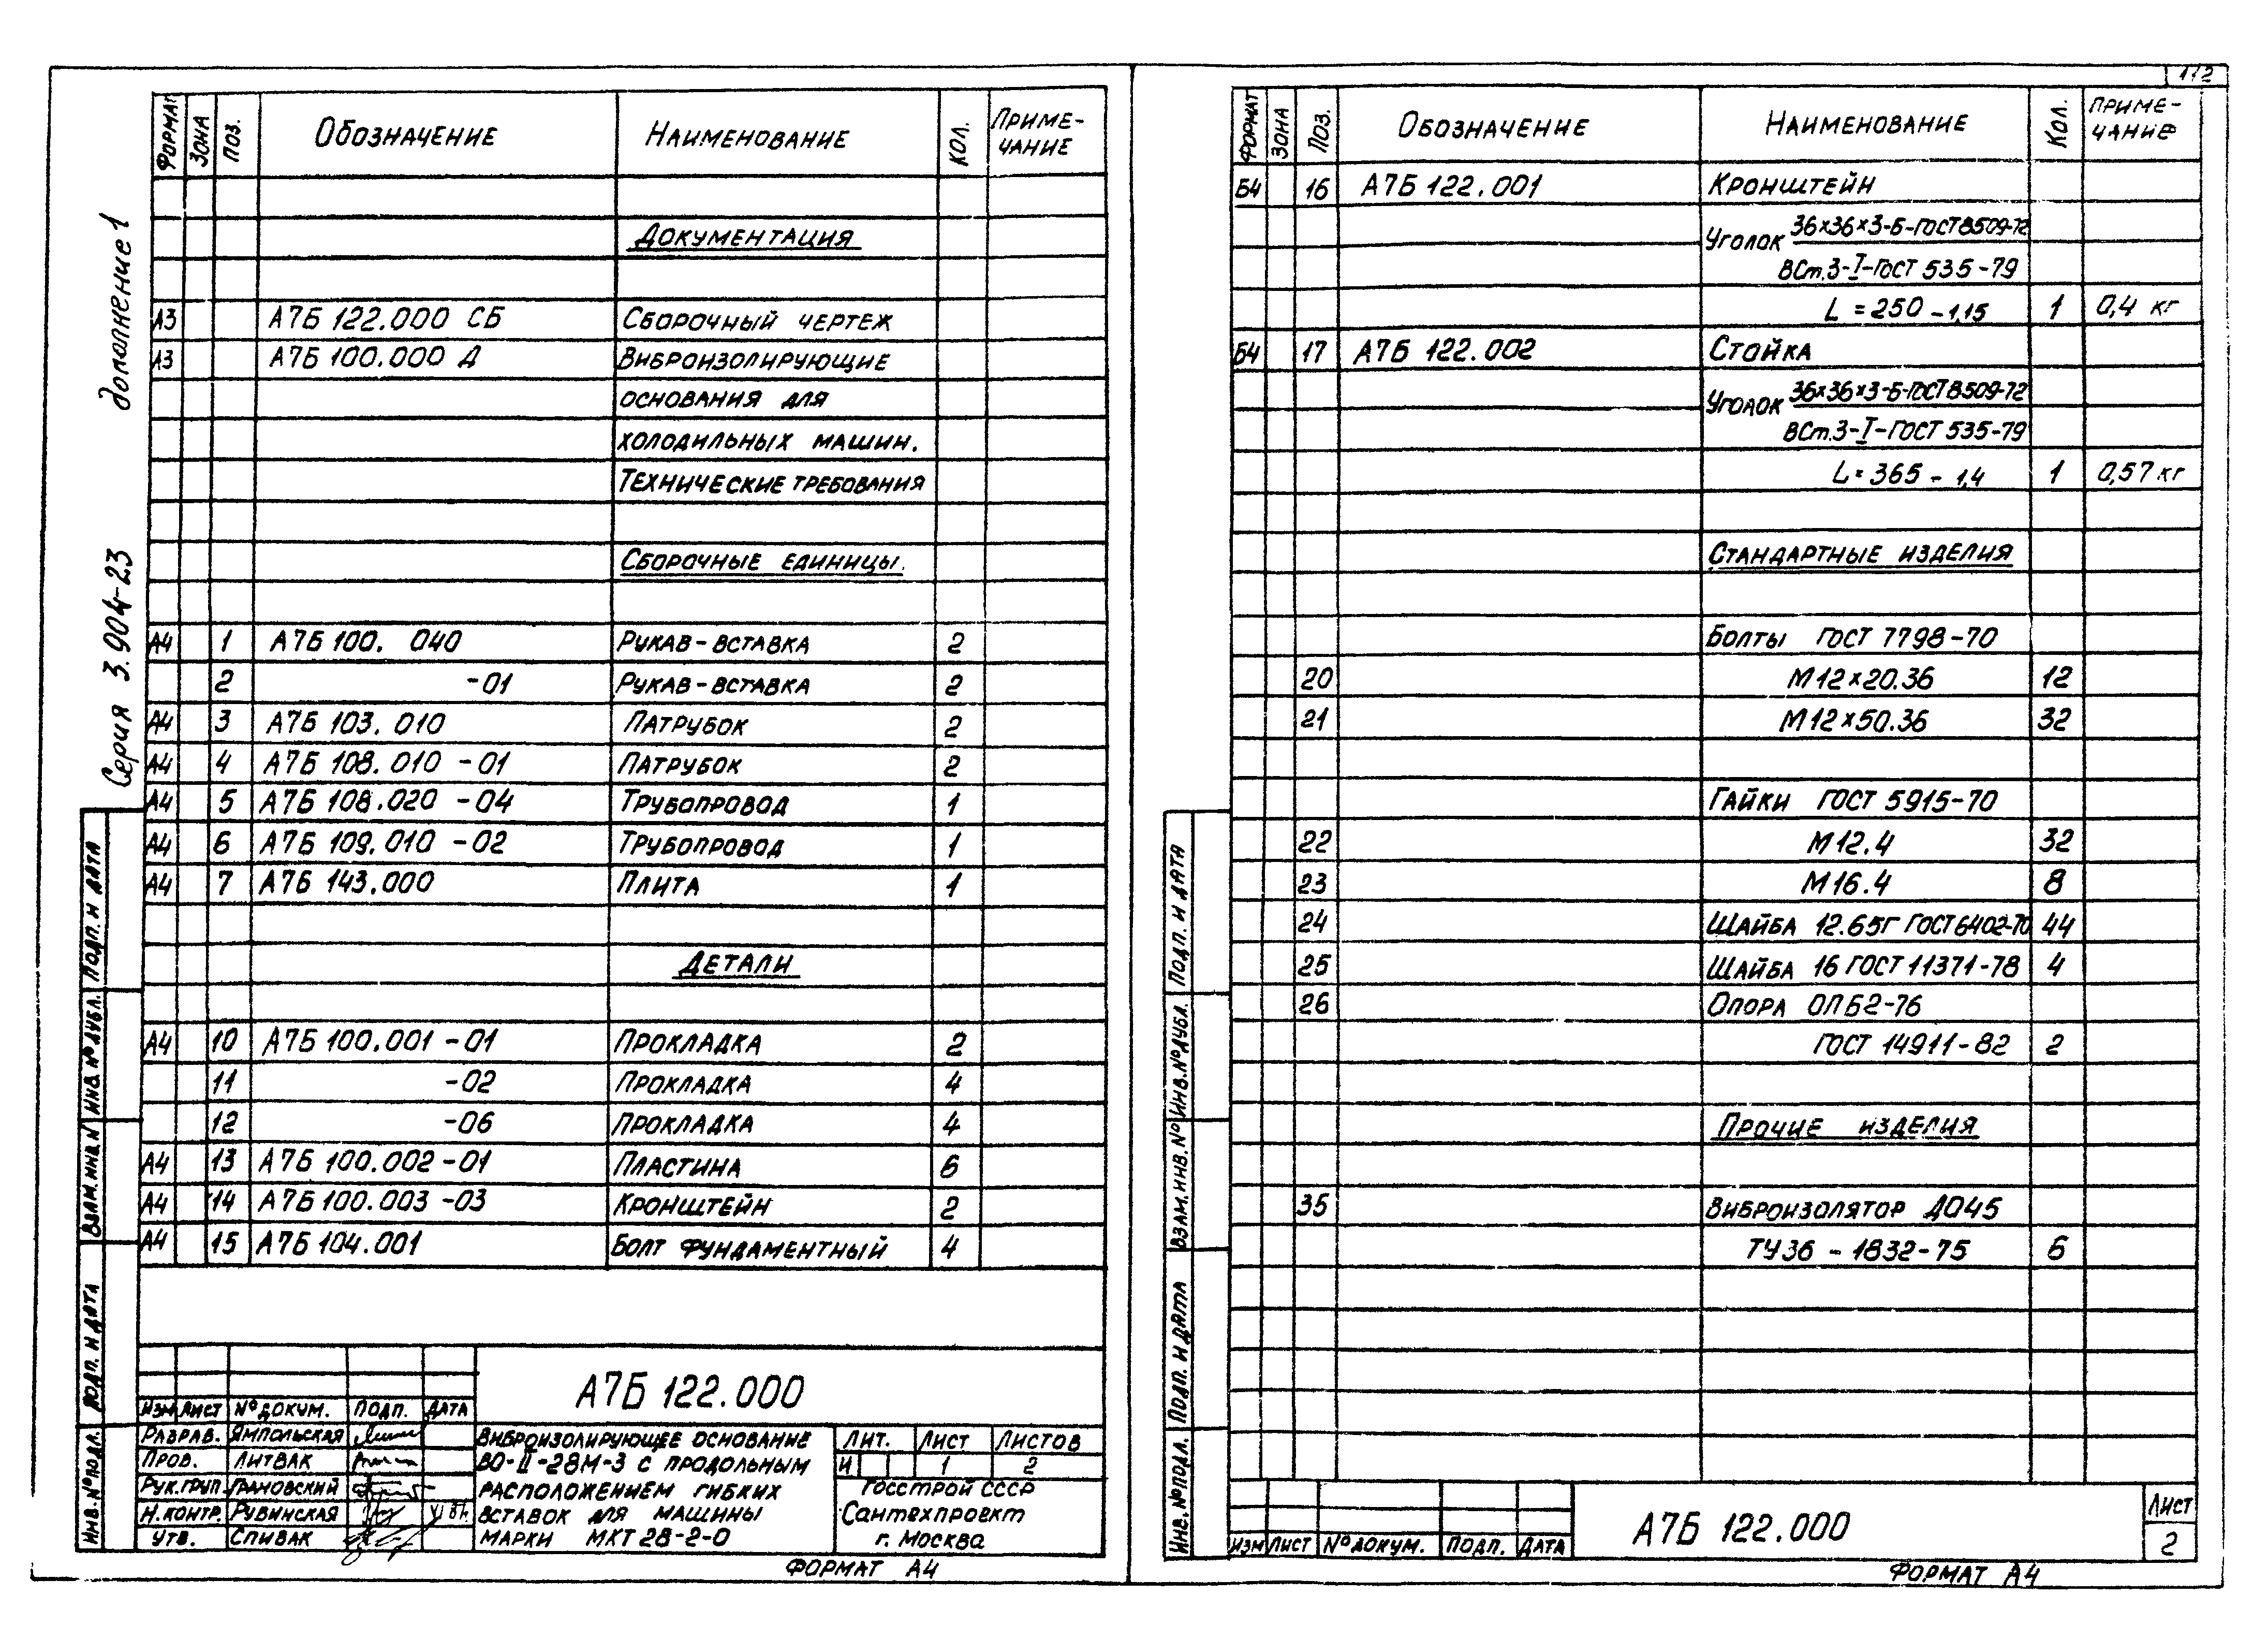 112
Серия 3.904-23 дополнение 1
ФОРМАТ ЗОНА ПОЗ. ОБОЗНАЧЕНИЕ НАИМЕНОВАНИЕ КОЛ. ПРИМЕ-
ЧАНИЕ
ДОКУМЕНТАЦИЯ
А3 А7Б 122.000 СБ СБОРОЧНЫЙ ЧЕРТЕЖ
А3 А7Б 100.000 Д ВИБРОИЗОЛИРУЮЩИЕ
ОСНОВАНИЯ ДЛЯ
ХОЛОДИЛЬНЫХ МАШИН.
ТЕХНИЧЕСКИЕ ТРЕБОВАНИЯ
СБОРОЧНЫЕ ЕДИНИЦЫ.
А4 1 А7Б 100. 040 РУКАВ-ВСТАВКА 2
2 -01 РУКАВ-ВСТАВКА 2
А4 3 А7Б 103. 010 ПАТРУБОК 2
А4 4 А7Б 108. 010 -01 ПАТРУБОК 2
А4 5 А7Б 108.020 -04 ТРУБОПРОВОД 1
А4 6 А7Б 109.010 -02 ТРУБОПРОВОД 1
А4 7 А7Б 143.000 ПЛИТА 1
ДЕТАЛИ
А4 10 А7Б 100.001 -01 ПРОКЛАДКА 2
11 -02 ПРОКЛАДКА 4
12 -06 ПРОКЛАДКА 4
А4 13 А7Б 100.002-01 ПЛАСТИНА 6
А4 14 А7Б 100.003 -03 КРОНШТЕЙН 2
А4 15 А7Б 104.001 БОЛТ ФУНДАМЕНТНЫЙ 4
ИНВ.№ПОДЛ. ПОДП. И ДАТА ВЗАМ.ИНВ.№ ИНВ.№ДУБЛ. ПОДП. И ДАТА
А7Б 122.000
ИЗМ ЛИСТ №ДОКУМ. ПОДП. ДАТА
РАЗРАБ. ЯМПОЛЬСКАЯ
ПРОВ. ЛИТВАК
РУК.ГРУП. ГРАНОВСКИЙ
Н.КОНТР. РУВИНСКАЯ
УТВ. СПИВАК
ВИБРОИЗОЛИРУЮЩЕЕ ОСНОВАНИЕ
ВО-II-28М-3 С ПРОДОЛЬНЫМ
РАСПОЛОЖЕНИЕМ ГИБКИХ
ВСТАВОК ДЛЯ МАШИНЫ
МАРКИ МКТ 28-2-0
ЛИТ. ЛИСТ ЛИСТОВ
И 1 2
ГОССТРОЙ СССР
САНТЕХПРОЕКТ
г. МОСКВА
ФОРМАТ А4
ФОРМАТ ЗОНА ПОЗ. ОБОЗНАЧЕНИЕ НАИМЕНОВАНИЕ КОЛ. ПРИМЕ-
ЧАНИЕ
Б4 16 А7Б 122.001 КРОНШТЕЙН
УГОЛОК 36×36×3-Б-ГОСТ 8509-72
ВСт.3-I-ГОСТ 535-79
L = 250 -1,15 1 0,4 кг
Б4 17 А7Б 122.002 СТОЙКА
УГОЛОК 36×36×3-Б-ГОСТ 8509-72
ВСт.3-I-ГОСТ 535-79
L = 365 - 1,4 1 0,57 кг
СТАНДАРТНЫЕ ИЗДЕЛИЯ
БОЛТЫ ГОСТ 7798-70
20 М12×20.36 12
21 М12×50.36 32
ГАЙКИ ГОСТ 5915-70
22 М12.4 32
23 М16.4 8
24 ШАЙБА 12.65Г ГОСТ 6402-70 44
25 ШАЙБА 16 ГОСТ 11371-78 4
26 ОПОРА ОПБ2-76
ГОСТ 14911-82 2
ПРОЧИЕ ИЗДЕЛИЯ
35 ВИБРОИЗОЛЯТОР ДО45
ТУ36 - 1832-75 6
ИНВ.№ПОДЛ. ПОДП. И ДАТА ВЗАМ.ИНВ.№ ИНВ.№ДУБЛ. ПОДП. И ДАТА
ИЗМ ЛИСТ №ДОКУМ. ПОДП. ДАТА
А7Б 122.000
ЛИСТ
2
ФОРМАТ А4